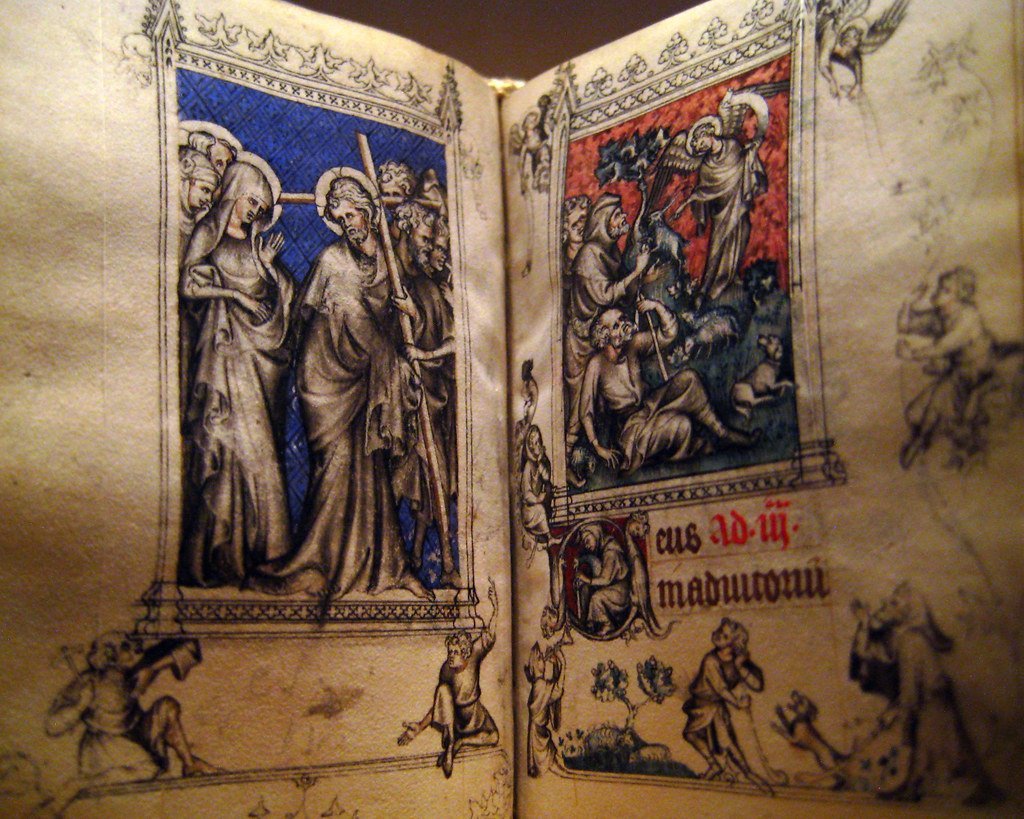 Deus Ad·iij·
in adiutoriū